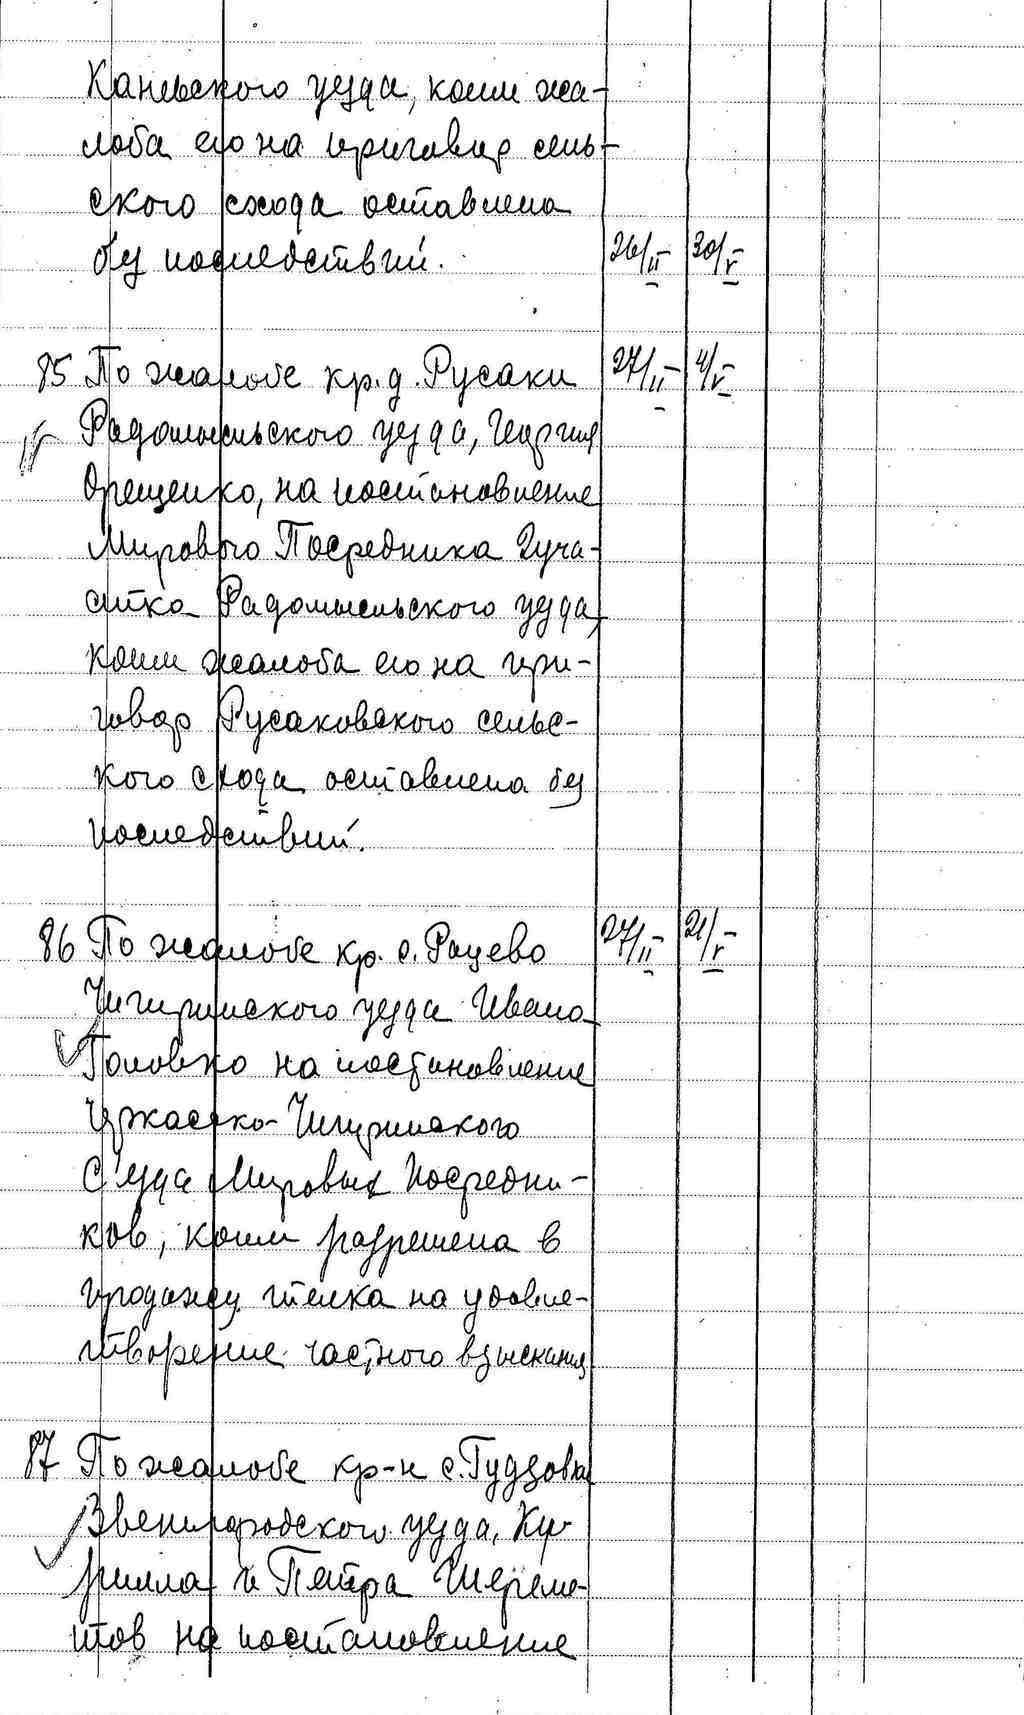 Каневского уезда, коим жа-
лоба его на приговор сель-
ского схода оставлена
без последствий. 26/II 30/V
85 По жалобе кр. д. Русаки 27/II 4/V
Радомысльского уезда, Георгия
Орещенко, на постановление
Мирового Посредника 2 уча-
стка Радомысльского уезда,
коим жалоба его на при-
говор Русаковского сельс-
кого схода оставлена без
последствий.
86 По жалобе кр. с. Рацево 27/II 21/V
Чигиринского уезда Ивана
Головко на постановление
Черкасско-Чигиринского
Съезда Мировых Посредни-
ков, коим разрешена в
продажу телка на удовле-
творение частного взыскания
87 По жалобе кр-н с. Гудзовки
Звенигородского уезда, Ки-
рилла и Петра Шереме-
тов на постановление